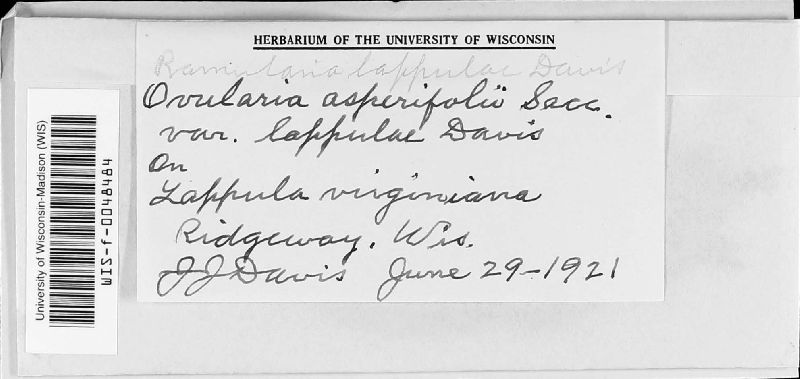 HERBARIUM OF THE UNIVERSITY OF WISCONSIN
Ramularia lappulae Davis
Ovularia asperifolii Sacc.
var. lappulae Davis
On
Lappula virginiana
Ridgeway, Wis.
JJ Davis June 29-1921
University of Wisconsin-Madison (WIS)
WIS-f-0048484